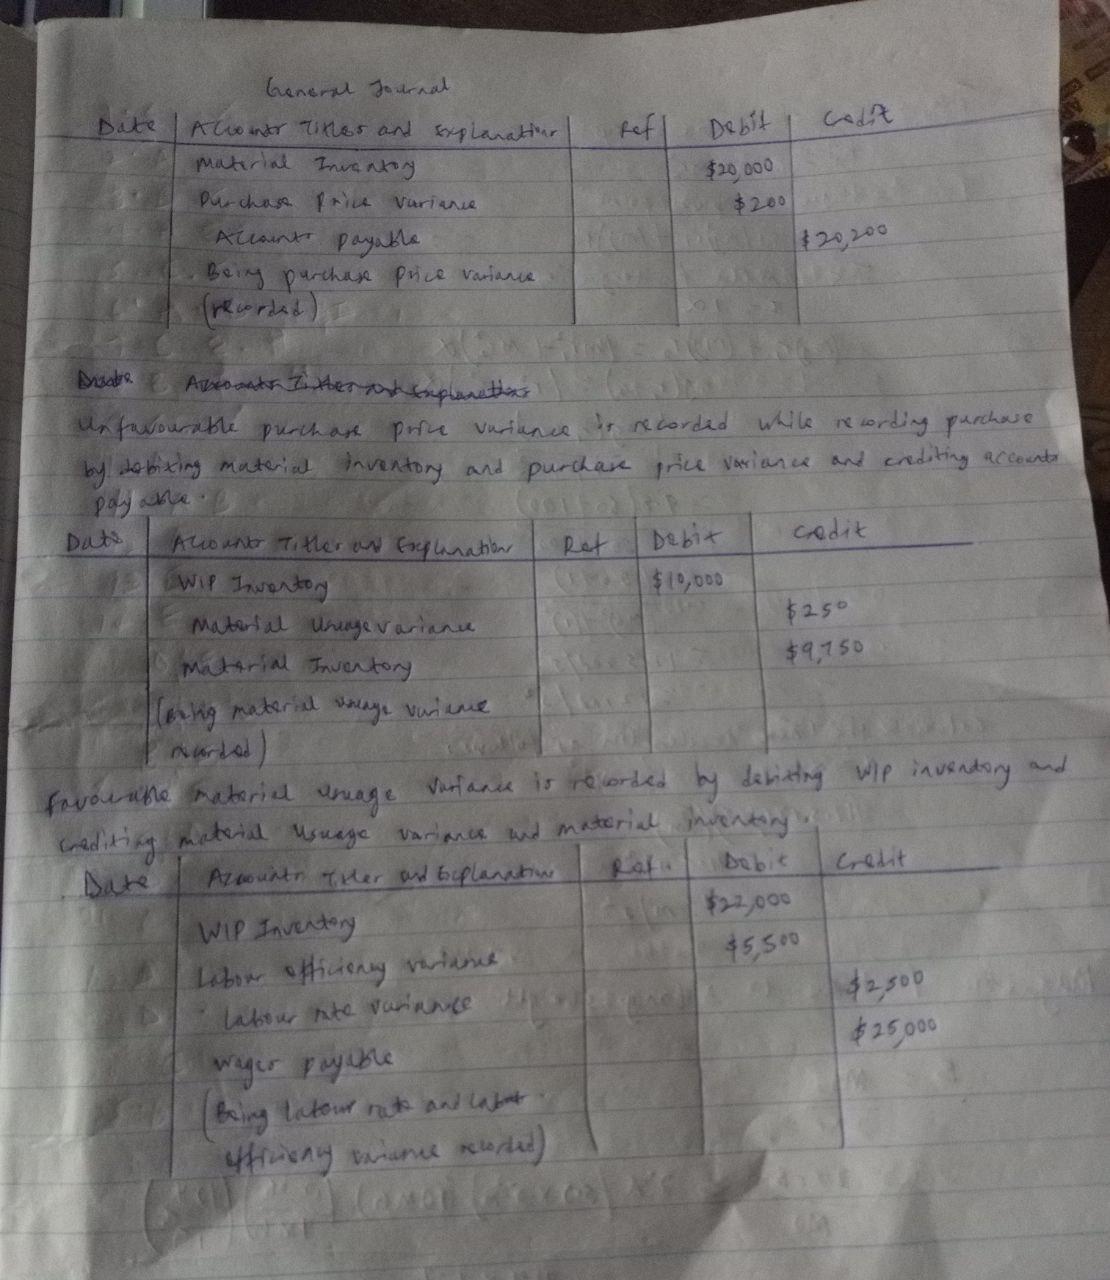 General Journal
Date Accounts Titles and Explanations Ref Debit Credit
Material Inventory $20,000
Purchase Price Variance $200
Accounts payable $20,200
(Being purchase price variance
(recorded)
Accounts Titles and Explanations
Unfavourable purchase price variance is recorded while recording purchase
by debiting material inventory and purchase price variance and crediting accounts
payable.
Date Accounts Titles and Explanation Ref Debit Credit
WIP Inventory $10,000
Material Usuage variance $250
Material Inventory $9,750
(Being material usuage variance
recorded)
Favourable material usuage variance is recorded by debiting WIP inventory and
crediting material usuage variance and material inventory.
Date Accounts Titles and Explanation Ref. Debit Credit
WIP Inventory $22,000
Labour efficiency variance $5,500
Labour rate variance $2,500
Wages payable $25,000
(Being labour rate and labour
efficiency variance recorded)